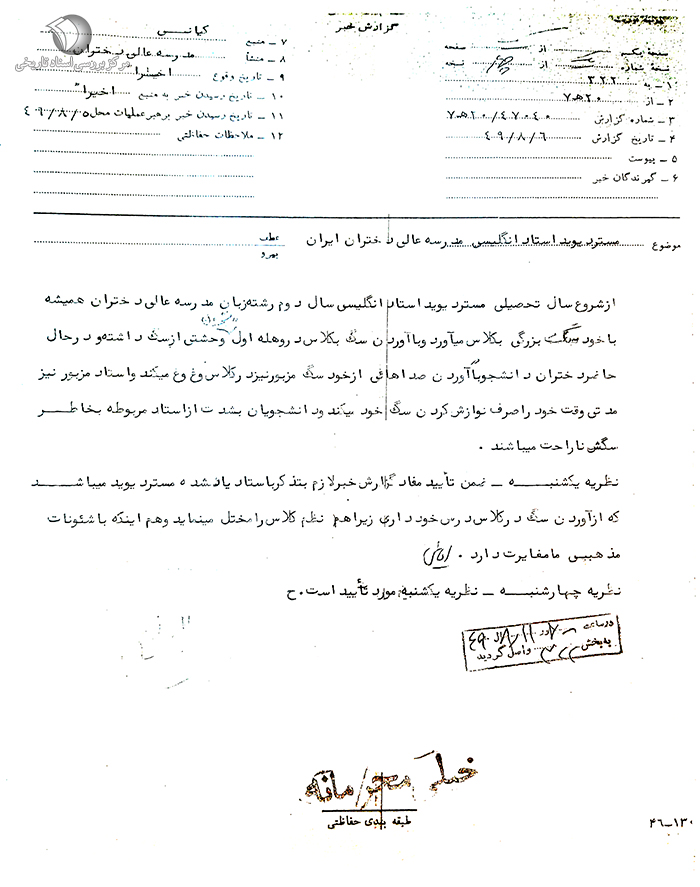 گزارش خبر
صفحه یک از صفحه
نسخه شماره یک از نسخه
۱ ـ به ۳۲۲
۲ ـ از ۲۰هـ۷
۳ ـ شماره گزارش ۷هـ۲۰/۴۷۰۴۰
۴ ـ تاریخ گزارش ۴۹/۸/۶
۵ ـ پیوست
۶ ـ گیرندگان خبر
۷ ـ منبع کیانس
۸ ـ منشأ مدرسه عالی دختران
۹ ـ تاریخ وقوع اخیرا
۱۰ ـ تاریخ رسیدن خبر به منبع اخیرا"
۱۱ ـ تاریخ رسیدن خبر برهبر عملیات محل ۴۹/۸/۵
۱۲ ـ ملاحظات حفاظتی
مرکز بررسی اسناد تاریخی
موضوع مستردیوید استاد انگلیسی مدرسه عالی دختران ایران
عطف
پیرو
ازشروع سال تحصیلی مستردیوید استاد انگلیسی سال دوم رشته زبان مدرسه عالی دختران همیشه
با خود سگ بزرگی بکلاس میآورد وباآوردن سگ بکلاس دروهله اول وحشتی ازسگ داشته و درحال
حاضر دختران دانشجو باآوردن صداهائی ازخود سگ مزبورنیزدرکلاس وغ وغ میکند واستاد مزبور نیز
مدتی وقت خود راصرف نوازش کردن سگ خود میکند ودانشجویان بشدت ازاستاد مربوطه بخاطر
سگش ناراحت میباشند .
نظریه یکشنبه ـ ضمن تأیید مفاد گزارش خبرلازم بتذکرباستاد یادشده مستردیوید میباشد
که ازآوردن سگ درکلاس درس خودداری زیراهم نظم کلاس رامختل مینماید وهم اینکه باشئونات
مذهبی مامغایرت دارد .
نظریه چهارشنبه ـ نظریه یکشنبه مورد تأیید است. ح
درساعت روز
به بخش ۳۲۲ واصل گردید
خیلی محرمانه
طبقه بندی حفاظتی
۴۶ـ۱۳۰